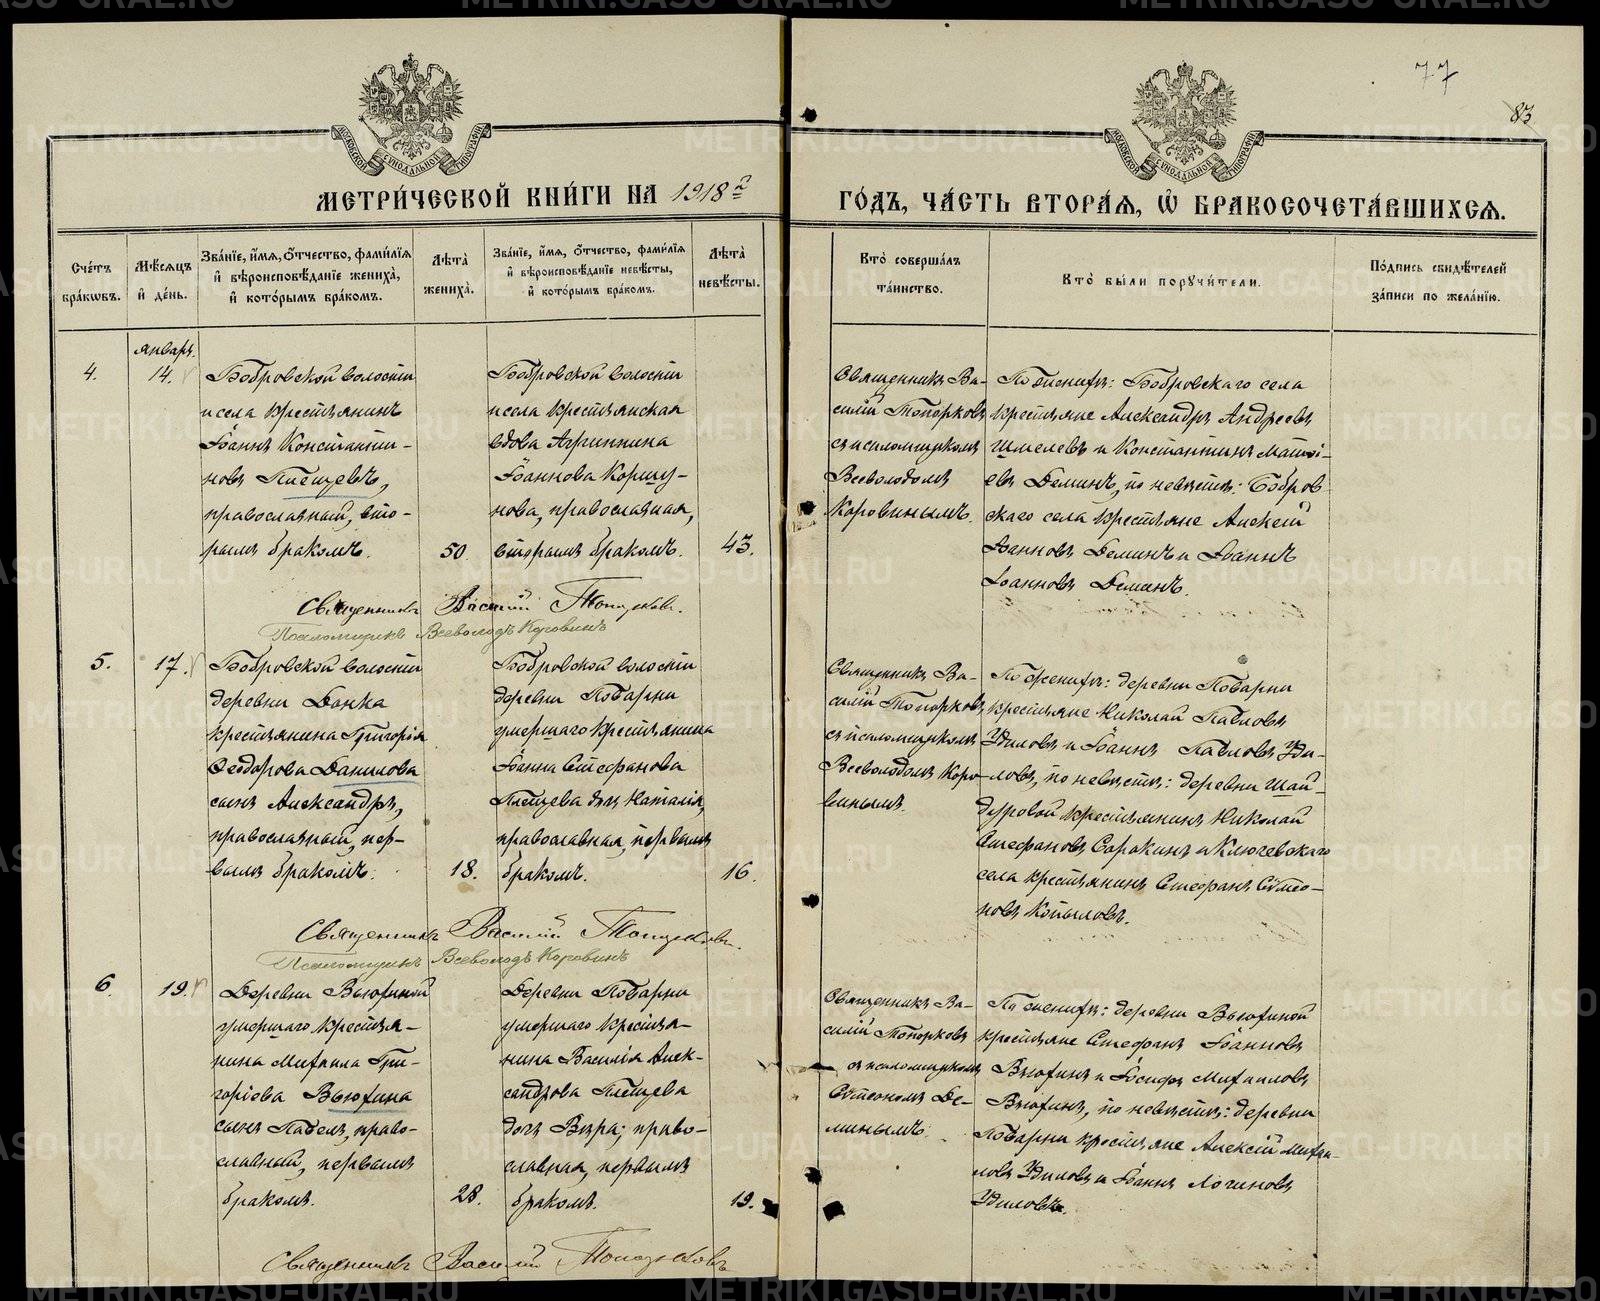 77
83
МЕТРИ́ЧЕСКОЙ КНИ́ГИ НА 1918 г
ГО́ДЪ, ЧА́СТЬ ВТОРА́Я, Ѡ БРАКОСОЧЕТА́ВШИХСЯ.
МОСКОВСКОЙ СѴНОДАЛЬНОЙ ТИПОГРАФІИ
МОСКОВСКОЙ СѴНОДАЛЬНОЙ ТИПОГРАФІИ
Сче́тъ
бра́ковъ.
Мѣ́сяцъ
и де́нь.
Зва́нїе, и́мя, о́тчество, фами́лїя
и вѣроисповѣ́данїе жениха̀,
и кото́рымъ бра́комъ.
Лѣта̀
жениха̀.
Зва́нїе, и́мя, о́тчество, фами́лїя
и вѣроисповѣ́данїе невѣ́сты,
и кото́рымъ бра́комъ.
Лѣта̀
невѣ́сты.
Кто̀ соверша́лъ
та́инство.
Кто̀ бы́ли поручи́тели.
По́дпись свидѣ́телей
за́писи по жела́нїю.
январь
4.
14.
Бобровской волости
и села крестьянинъ
Іоаннъ Константи-
новъ Плетцевъ,
православный, вто-
рымъ бракомъ.
50.
Бобровской волости
и села крестьянская
вдова Агриппина
Іоаннова Коршу-
нова, православная,
вторымъ бракомъ.
43.
Священникъ Ва-
силій Топорковъ
съ псаломщикомъ
Всеволодомъ
Коровинымъ.
По женихѣ: Бобровскаго села
крестьяне Александръ Андреевъ
Шмелевъ и Константинъ Матѳі-
евъ Деминъ, по невѣстѣ: Бобров-
скаго села крестьяне Алексій
Іоанновъ Деминъ и Іоаннъ
Іоанновъ Деминъ.
Священникъ Василій Топорковъ.
Псаломщикъ Всеволодъ Коровинъ
5.
17.
Бобровской волости
деревни Донка
крестьянина Григорія
Ѳеодорова Данилова
сынъ Александръ,
православный, пер-
вымъ бракомъ.
18.
Бобровской волости
деревни Поварни
умершаго крестьянина
Іоанна Стефанова
Плетцева дочь Наталія,
православная, первымъ
бракомъ.
16.
Священникъ Ва-
силій Топорковъ
съ псаломщикомъ
Всеволодомъ Коро-
винымъ.
По женихѣ: деревни Поварни
крестьяне Николай Павловъ
Удиловъ и Іоаннъ Павловъ Уди-
ловъ, по невѣстѣ: деревни Шай-
дуровой крестьянинъ Николай
Стефановъ Сорокинъ и Ключевскаго
села крестьянинъ Стефанъ Сѵмео-
новъ Копыловъ.
Священникъ Василій Топорковъ.
Псаломщикъ Всеволодъ Коровинъ
6.
19.
Деревни Вьюхиной
умершаго крестья-
нина Михаила Гри-
горіева Вьюхина
сынъ Павелъ, право-
славный, первымъ
бракомъ.
28.
Деревни Поварни
умершаго крестья-
нина Василія Алек-
сандрова Плетцева
дочь Вѣра, право-
славная, первымъ
бракомъ.
19.
Священникъ Ва-
силій Топорковъ
съ псаломщикомъ
Сѵмеономъ Де-
минымъ.
По женихѣ: деревни Вьюхиной
крестьяне Стефанъ Іоанновъ
Вьюхинъ и Іосифъ Михаиловъ
Вьюхинъ, по невѣстѣ: деревни
Поварни крестьяне Алексій Михаи-
ловъ Удиловъ и Іоаннъ Логиновъ
Удиловъ.
Священникъ Василій Топорковъ
METRIKI.GASU-URAL.RU